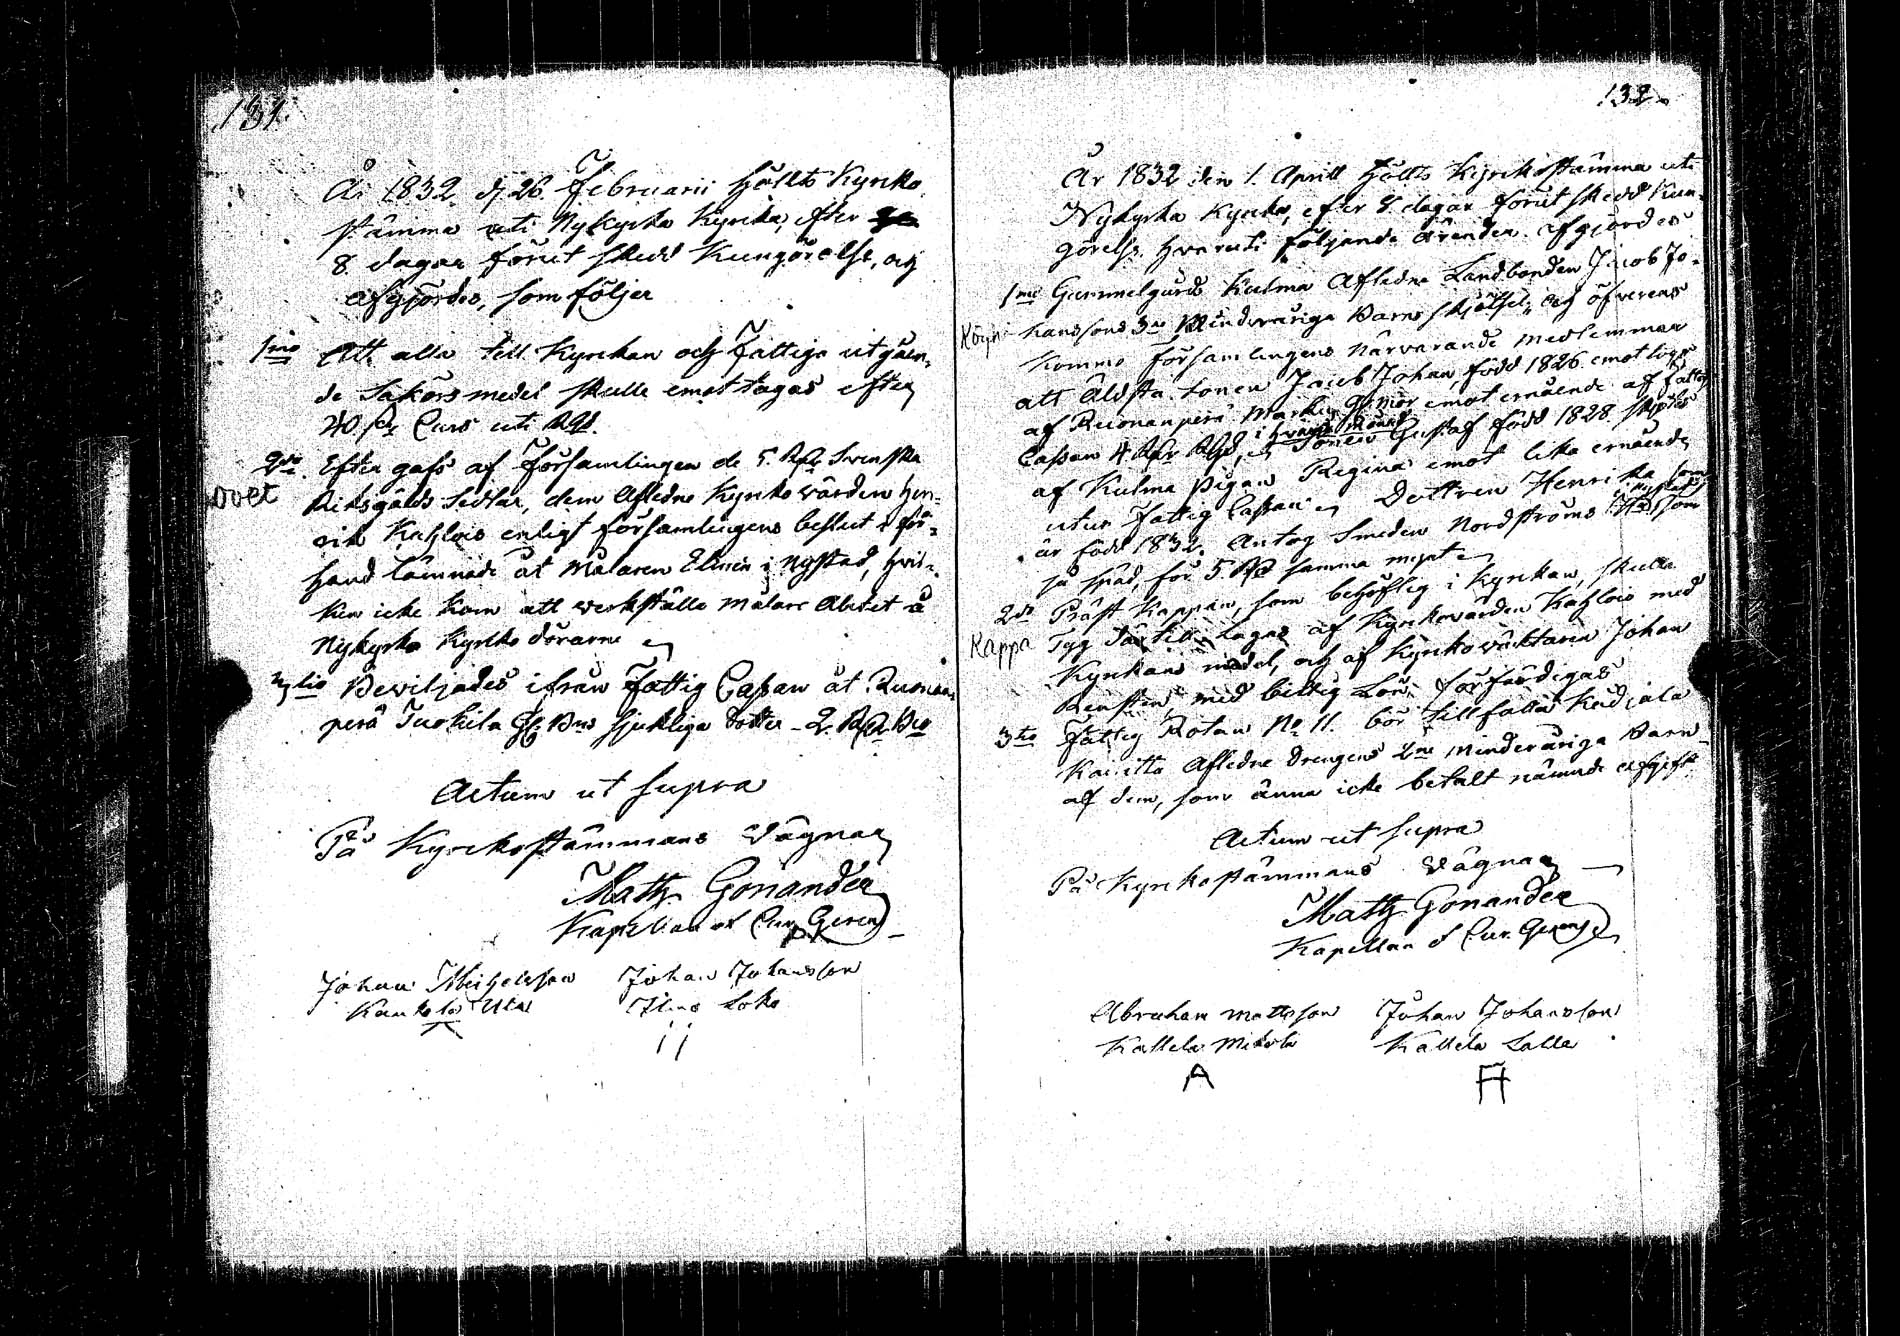 131.
År 1832. d. 26 Februarii hölts Kyrko
stämma uti Nykyrka Kyrka, efter
8 dagar förut skedd Kungörelse, och
afgjordes, som följer
1mo Att alla till Kyrckan och Fattiga utgåen-
de Sakörs medel skulle emottagas efter
40 Curs uti
2do Efter gafs af Församlingen de 5. Svenska
ovet Riksgälds Sedlar, dem Afledne Kyrkovärden Hen-
rik Kahlois enligt församlingens beslut i för-
hand lämnade åt Målaren Elmén i Nystad, hvil-
ken icke kom att verkställa målare Arbetet å
Nykyrka Kyrko dörarne
3tio Beviljades ifrån Fattig Cassan åt Ruonan
perä Tuokila sjukliga dotter 2.
Actum ut supra
På Kyrckostämmans Vägnar
Matth Gonander
Kapellan et Cur. Gerens
Johan Michelsson Johan Johansson
Kaukola Uta Loko
132.
År 1832 den 1. Aprill hölts Kyrckostämma uti
Nykyrka Kyrcka, efter 8. dagar förut skedd Kun-
görelse, hvaruti följande ärenden afgjordes
1mo Gammelgårds Kulma Afledne Landbonden Jacob Jo-
hanssons 3ne Minderåriga Barns skjötsel, och öfverens
kommo Församlingens närvarande medlemmar
att Äldsta Sonen Jacob Johan, född 1826. emottogs
af Ruonanperä emot ernående af fattig
Cassan 4. i hvarje Månad Sonen Gustaf född 1828. skjötes
af Kulma Pigan Regina emot lika ernående
utur Fattig Cassan Dottren Henrika som
är född 1832. Antog Smeden Nordströms i Nystad som
så späd, för 5. samma mynt
2do Präst Kappan, som behöflig i Kyrckan, skulle
Kappa Tyg tagas af Kyrkovärden Kahlois med
Kyrkans medel, och af Kyrkoväktaren Johan
Renstén, med billig Lön förfärdigas
3tio Fattig Rotan No 11. bör tillfalla Kudjala
Afledne Drengens 2ne Minderåriga Barn
af dem, som änna icke betalt nämnde
Actum ut supra
På Kyrckostämmans Vägnar
Matth Gonander
Kapellan et Cur. Gerens
Abraham Mattsson Johan Johansson
Kallela Mikola Kallela Lalla
A